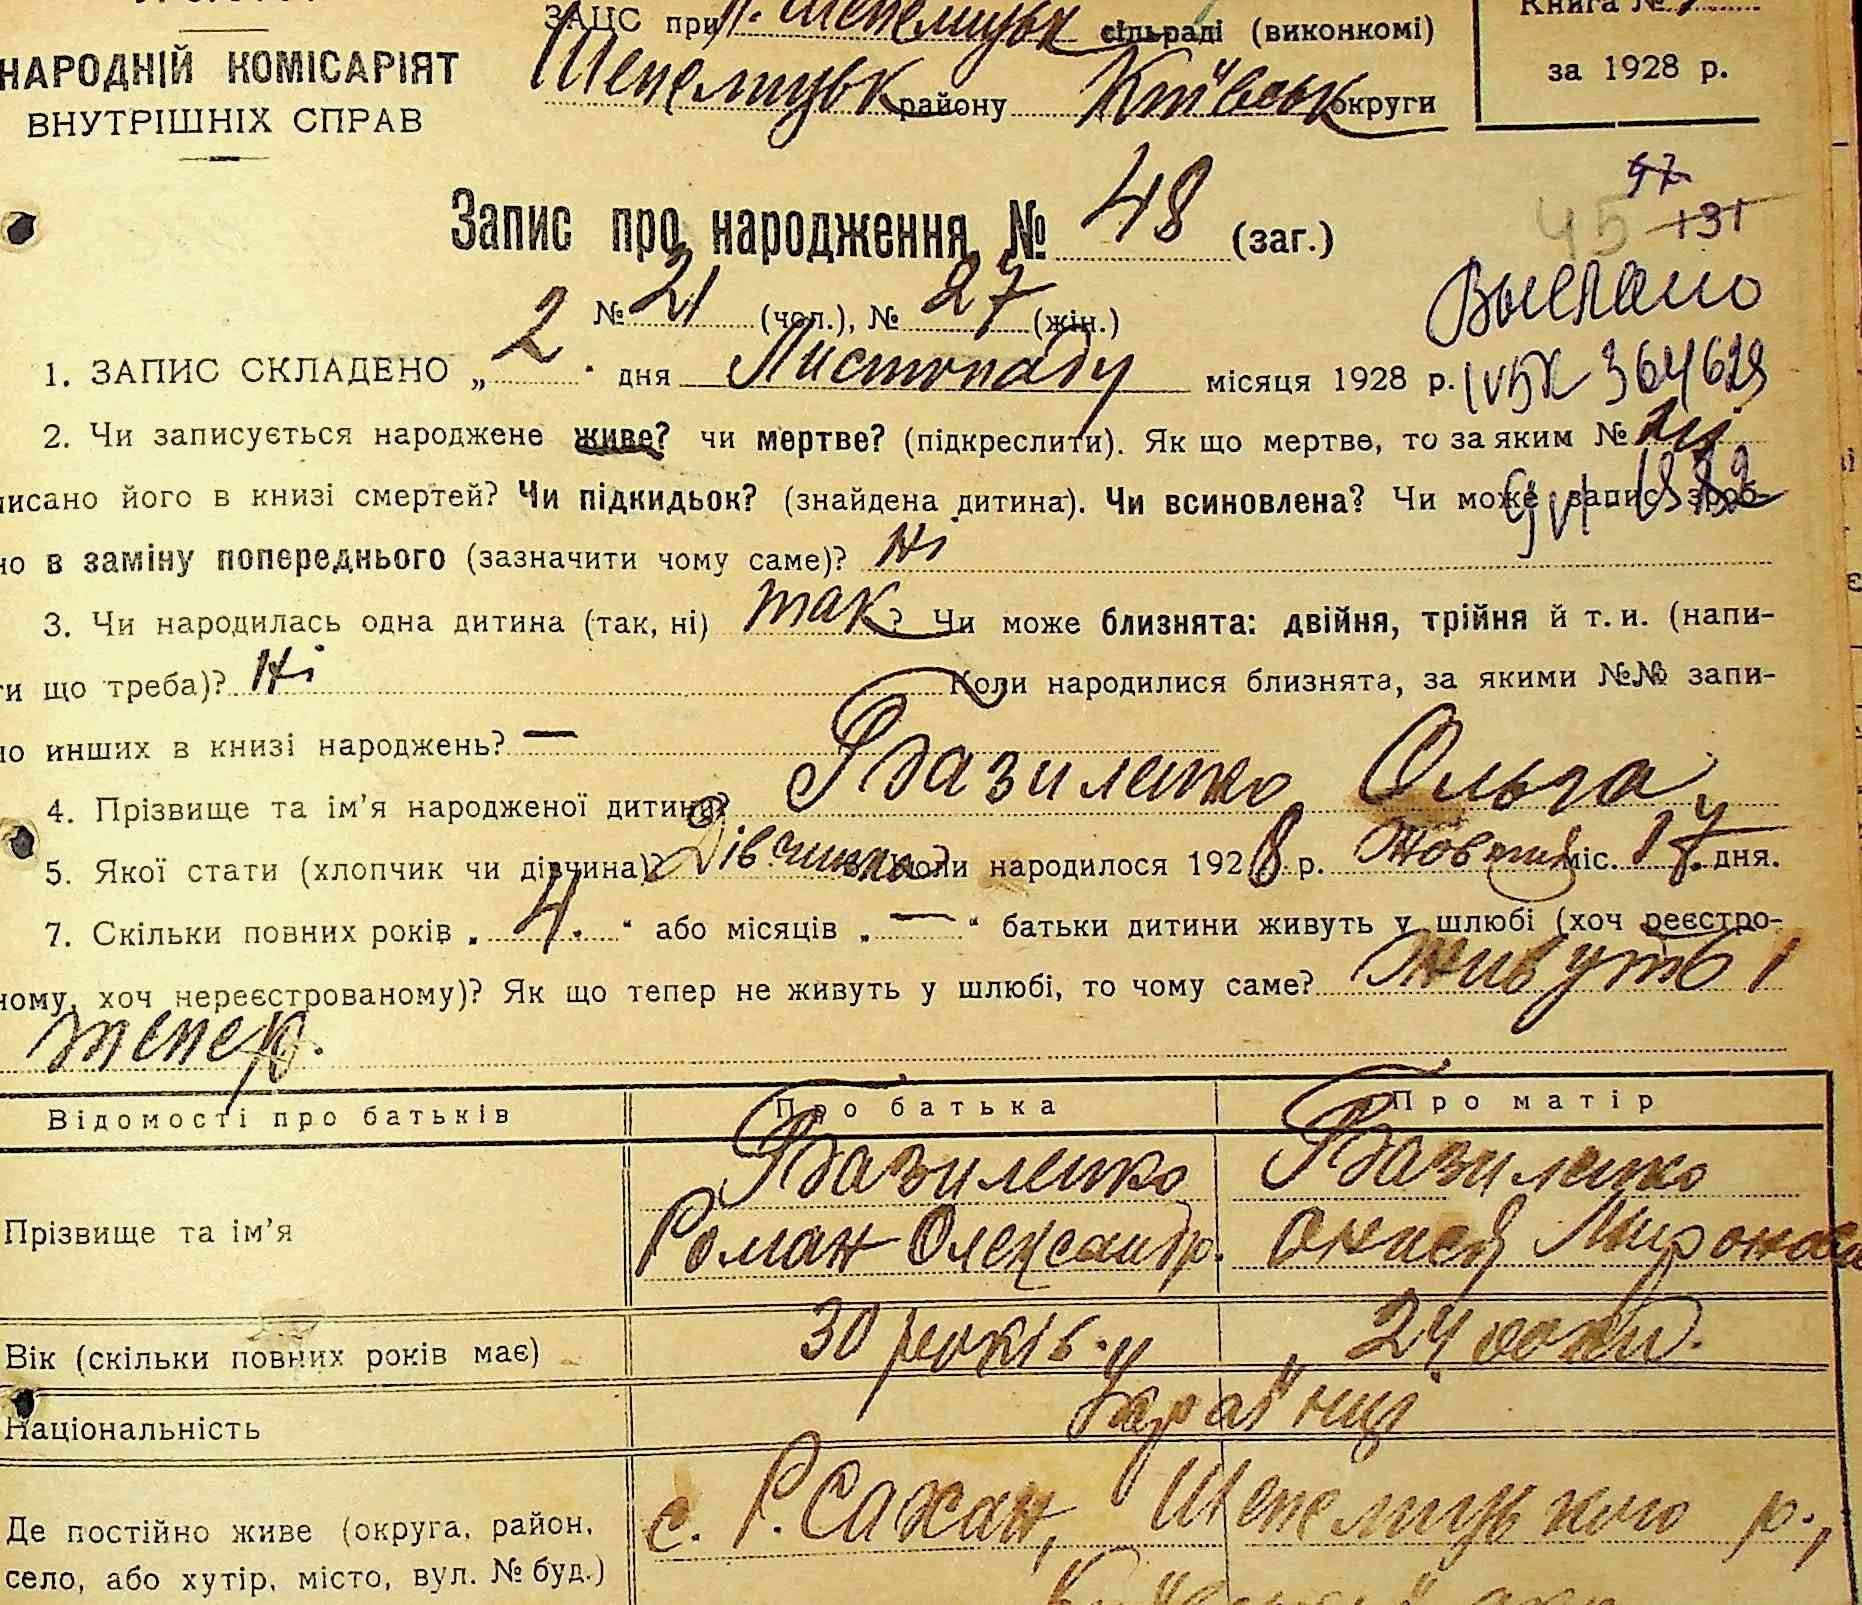 ЗАЦС при Р. Шепелицьк сільраді (виконкомі)
Книга №
НАРОДНІЙ КОМІСАРІЯТ
Шепелицьк району Київськ округи
за 1928 р.
ВНУТРІШНІХ СПРАВ
97
Запис про народження № 48 (заг.)
45 131
№ 21 (чол.), № 27 (жін.)
Выслано
1. ЗАПИС СКЛАДЕНО „ 2 “ дня Листопаду місяця 1928 р.
364629
2. Чи записується народжене живе? чи мертве? (підкреслити). Як що мертве, то за яким №
писано його в книзі смертей? Чи підкидьок? (знайдена дитина). Чи всиновлена? Чи може запис зроб-
но в заміну попереднього (зазначити чому саме)? Ні
3. Чи народилась одна дитина (так, ні) так? Чи може близнята: двійня, трійня й т. и. (напи-
ти що треба)? Ні Коли народилися близнята, за якими №№ запи-
но инших в книзі народжень? —
4. Прізвище та ім’я народженої дитини? Базиленко Ольга
5. Якої стати (хлопчик чи дівчина)? Дівчинка коли народилося 1928 р. Жовтня міс. 17 дня.
7. Скільки повних років „ 4. “ або місяців „ — “ батьки дитини живуть у шлюбі (хоч реєстро-
ному, хоч нереєстрованому)? Як що тепер не живуть у шлюбі, то чому саме? Живуть і
тепер.
Відомості про батьків Про батька Про матір
Базиленко Базиленко
Прізвище та ім’я Роман Олександр. Онися Миронов
Вік (скільки повних років має) 30 років. 24 роки.
Національність Українці
Де постійно живе (округа, район, с. Р. Сахан, Шепелицького р.,
село, або хутір, місто, вул. № буд.)